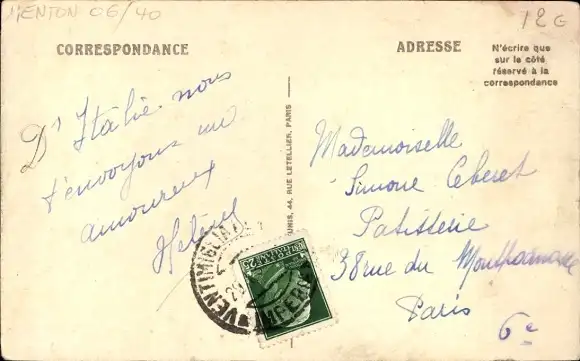 MENTON 06/40
12€
CORRESPONDANCE
ADRESSE
N'écrire que
sur le côté
réservé à la
correspondance
D'Italie nous
t'envoyons un
amoureux
44, RUE LETELLIER, PARIS
Mademoiselle
Simone Ceberet
Patisserie
38 rue du
Paris
6e
VENTIMIGLIA